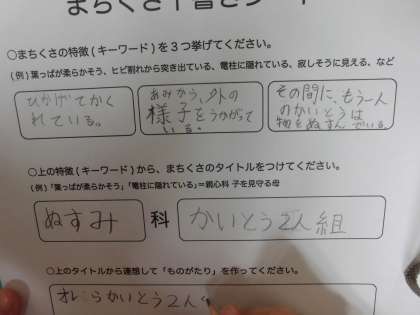 まちくさ
○まちくさの特徴（キーワード）を３つ挙げてください。
（例）葉っぱが柔らかそう、ヒビ割れから突き出ている、電柱に隠れている、寂しそうに見える、など
ひかげでかく
れている。
あみから、外の
様子をうかがって
いる。
その間に、もう一人
のかいとうは
物をぬすんでいる。
○上の特徴（キーワード）から、まちくさのタイトルをつけてください。
（例）「葉っぱが柔らかそう」「電柱に隠れている」＝親心科 子を見守る母
ぬすみ 科 かいとう2人組
○上のタイトルから連想して「ものがたり」を作ってください。
オレらかいとう2人